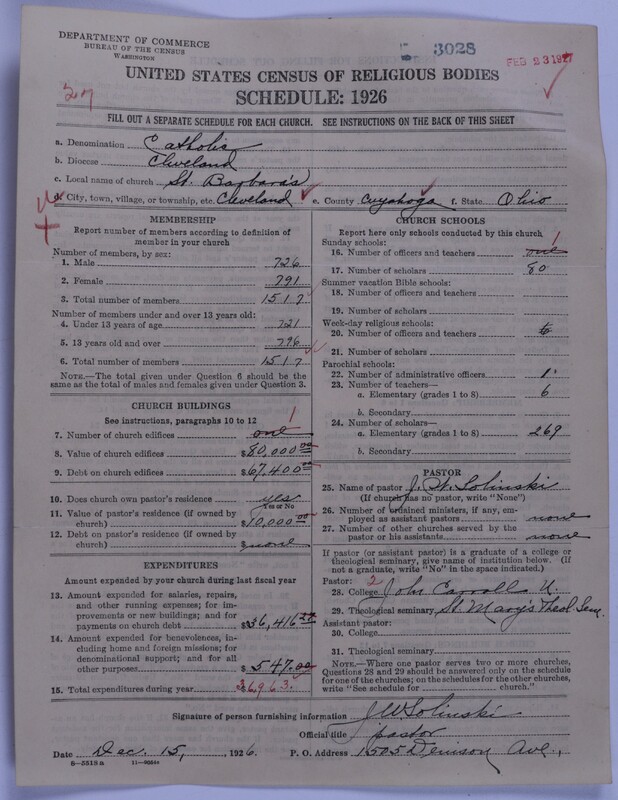 DEPARTMENT OF COMMERCE
BUREAU OF THE CENSUS
WASHINGTON
3028
FEB 23 1927
UNITED STATES CENSUS OF RELIGIOUS BODIES
SCHEDULE: 1926
FILL OUT A SEPARATE SCHEDULE FOR EACH CHURCH. SEE INSTRUCTIONS ON THE BACK OF THIS SHEET
a. Denomination Catholic
b. Diocese Cleveland
c. Local name of church St. Barbara's
d. City, town, village, or township, etc. Cleveland e. County Cuyahoga f. State Ohio
MEMBERSHIP
Report number of members according to definition of
member in your church
Number of members, by sex:
1. Male 726
2. Female 791
3. Total number of members 1517
Number of members under and over 13 years old:
4. Under 13 years of age 721
5. 13 years old and over 796
6. Total number of members 1517
NOTE.—The total given under Question 6 should be
same as the total of males and females given under Question 3.
CHURCH BUILDINGS
See instructions, paragraphs 10 to 12
7. Number of church edifices one 1
8. Value of church edifices $80,000.00
9. Debt on church edifices $67,400.00
10. Does church own pastor's residence yes
Yes or No
11. Value of pastor's residence (if owned by
church) $10,000.00
12. Debt on pastor's residence (if owned by
church) none
EXPENDITURES
Amount expended by your church during last fiscal year
13. Amount expended for salaries, repairs,
and other running expenses; for im-
provements or new buildings; and for
payments on church debt $36,416
14. Amount expended for benevolences, in-
cluding home and foreign missions; for
denominational support; and for all
other purposes $547.00
15. Total expenditures during year $36963.
CHURCH SCHOOLS
Report here only schools conducted by this church
Sunday schools:
16. Number of officers and teachers one 1
17. Number of scholars 80
Summer vacation Bible schools:
18. Number of officers and teachers
19. Number of scholars
Week-day religious schools:
20. Number of officers and teachers
21. Number of scholars
Parochial schools:
22. Number of administrative officers 1
23. Number of teachers—
a. Elementary (grades 1 to 8) 6
b. Secondary
24. Number of scholars—
a. Elementary (grades 1 to 8) 269
b. Secondary
PASTOR
25. Name of pastor J. W. Solinski
(If church has no pastor, write "None")
26. Number of ordained ministers, if any, em-
ployed as assistant pastors none
27. Number of other churches served by the
pastor or his assistants none
If pastor (or assistant pastor) is a graduate of a college or
theological seminary, give name of institution below. (If
not a graduate, write "No" in the space indicated.)
Pastor: 2
28. College John Carroll U.
29. Theological seminary St. Mary's Theol Sem.
Assistant pastor:
30. College
31. Theological seminary
NOTE.—Where one pastor serves two or more churches,
Questions 28 and 29 should be answered only on the schedule
for one of the churches; on the schedules for the other churches,
write "See schedule for church."
Signature of person furnishing information J W Solinski
Official title pastor
Date Dec. 15, 1926. P. O. Address 1505 Denison Ave.,
8—5518a 11—9064a